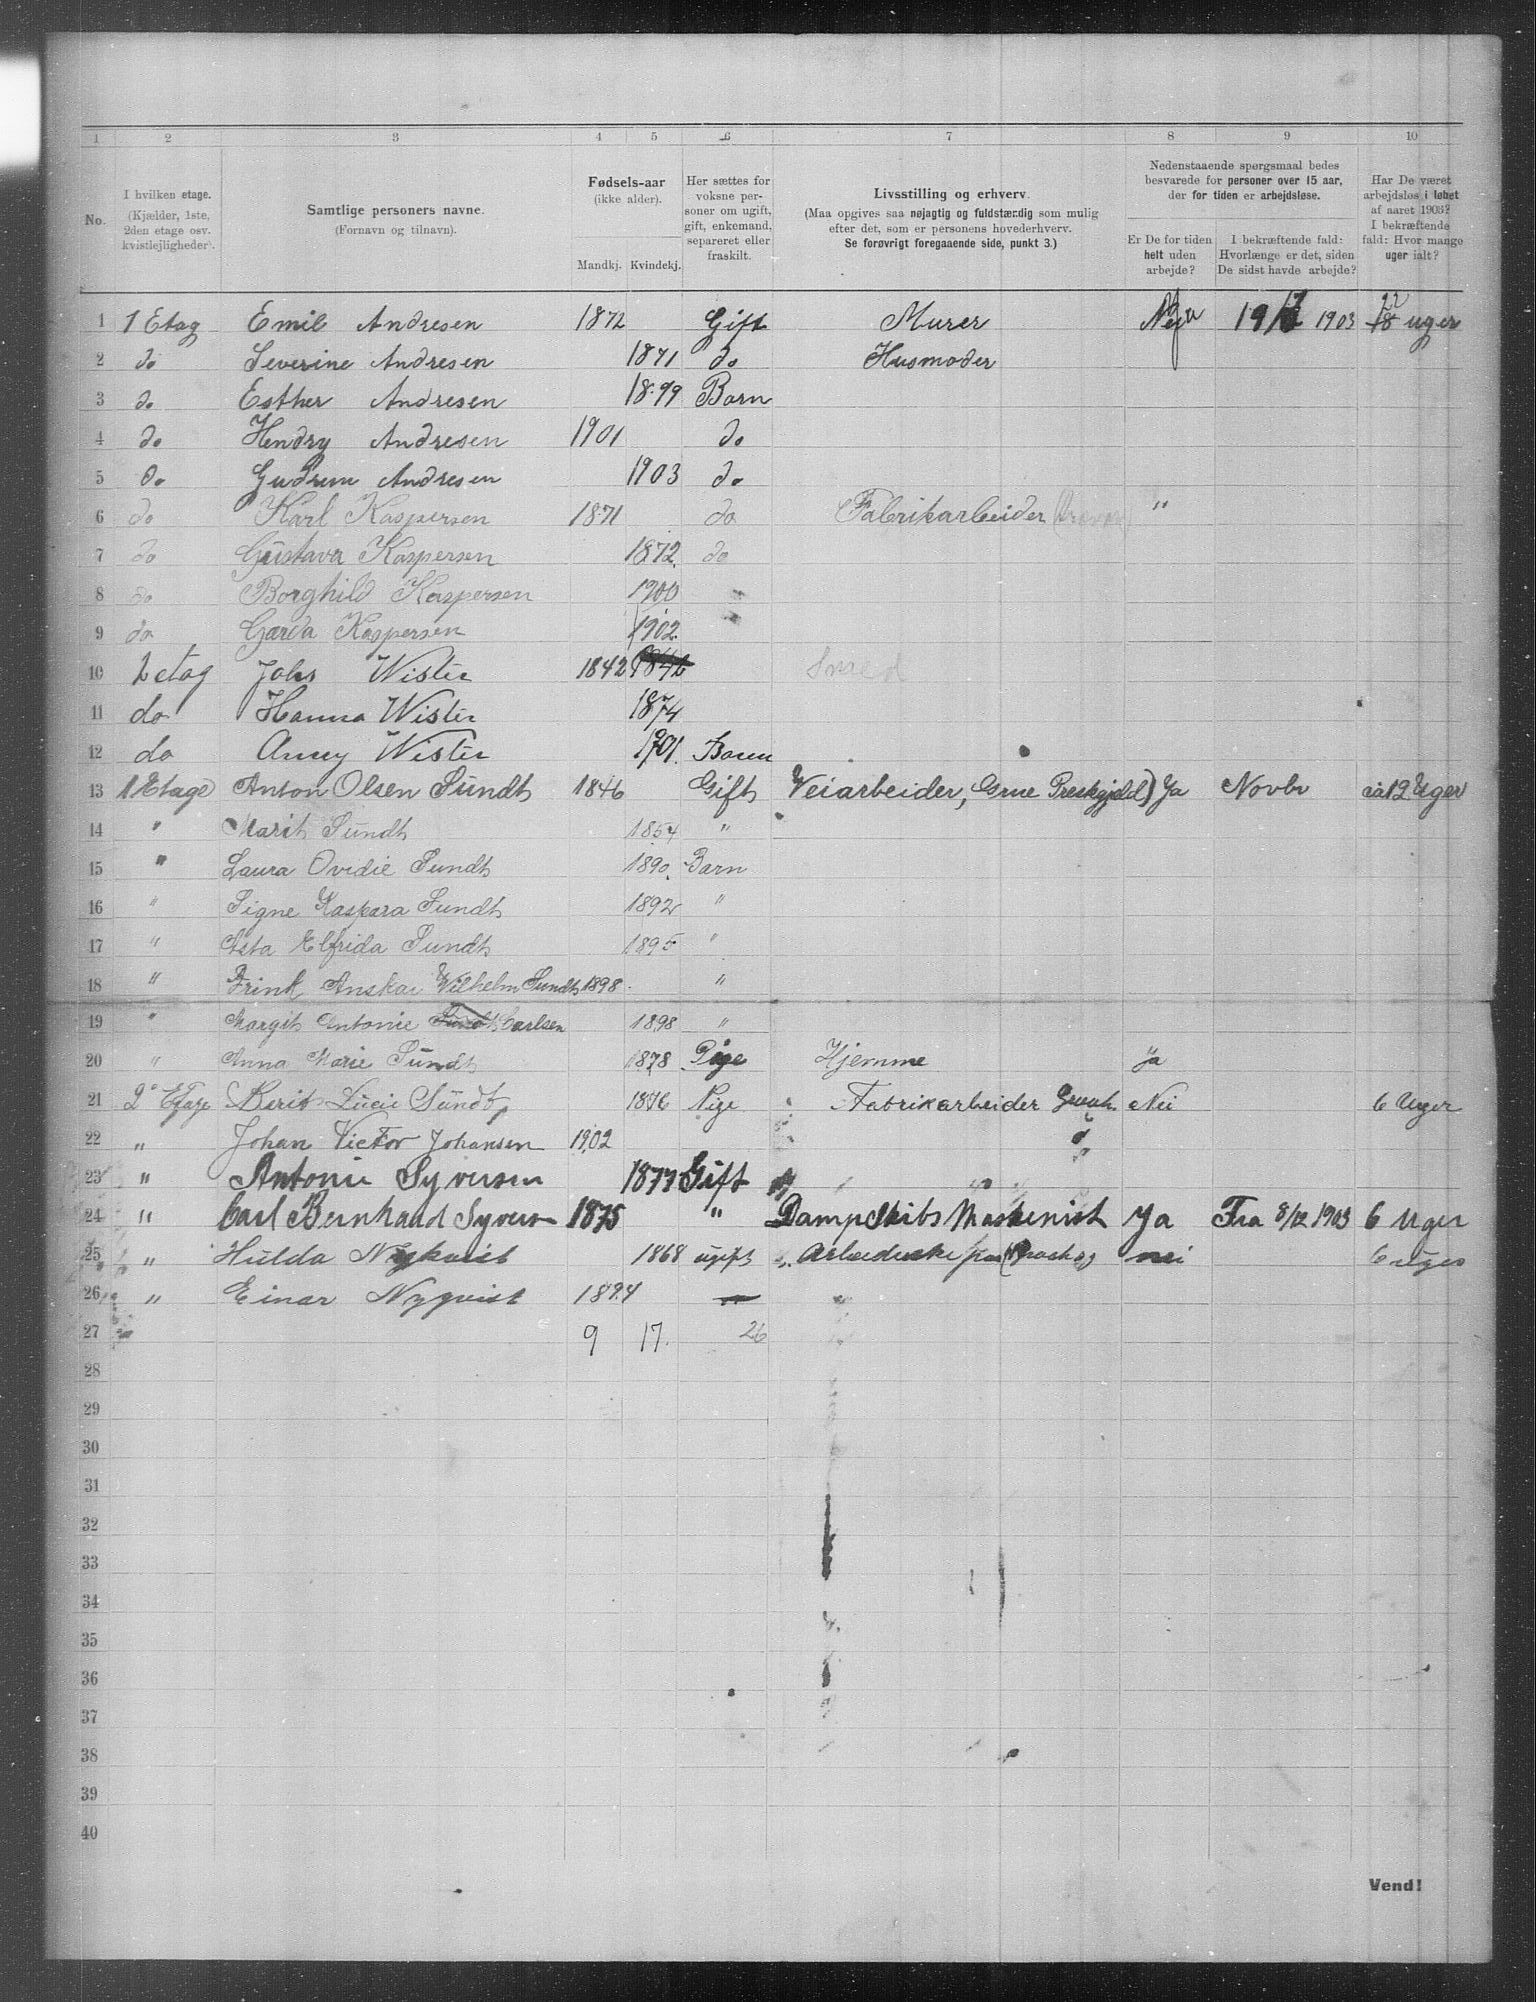 1 2 3 4 5 6 7 8 9 10
No.
I hvilken etage. (Kjælder, 1ste, 2den etage osv. kvistleiligheder).
Samtlige personers navne. (Fornavn og tilnavn).
Fødsels-aar (ikke alder).
Mandkj. Kvindekj.
Her sættes for voksne personer om ugift, gift, enkemand, separeret eller fraskilt.
Livsstilling og erhverv. (Maa opgives saa nøjagtig og fuldstændig som mulig efter det, som er personens hovederhverv. Se forøvrigt foregaaende side, punkt 3.)
Nedenstaaende spørgsmaal bedes besvarede for personer over 15 aar, der for tiden er arbejdsløse.
Er De for tiden helt uden arbejde?
I bekræftende fald: Hvorlænge er det, siden De sidst havde arbejde?
Har De været arbejdsløs i løbet af aaret 1903? I bekræftende fald: Hvor mange uger ialt?
1 1 Etag Emil Andresen 1872 Gift Murer 1903 22 uger
2 do Severine Andresen 1871 do Husmoder
3 do Esther Andresen 1899 Barn
4 do Hendry Andresen 1901 do
5 do Gudrun Andresen 1903 do
6 do Karl Kaspersen 1871 do Fabrikarbeider "
7 do Gustava Kaspersen 1872 do
8 do Borghild Kaspersen 1900 "
9 do Gærda Kaspersen 1902 "
10 2 etag Johs Wister 1842 Smed
11 do Hanna Wister 1874
12 do Anny Wister 1901. Barn
13 1 Etage Anton Olsen Sundt 1846 Gift Veiarbeider, Grue Prestgjeld) Ja Novbr ca 12 Uger
14 " Marit Sundt 1854 "
15 " Laura Ovidie Sundt 1890 Barn
16 " Signe Kaspara Sundt 1892 "
17 " Asta Elfrida Sundt 1895 "
18 " Frink Anskar Wilhelm Sundt 1898 "
19 " Margit Antonie Sundt Carlsen 1898 "
20 " Anna Marie Sundt 1878 Pige Hjemme Ja
21 2 Etage Berit Lucie Sundt 1876 Pige Fabrikarbeider Nei 6 Uger
22 " Johan Victor Johansen 1902
23 " Antonie Syversen 1877 Gift
24 " Carl Bernhard Syvers 1875 " Dampskibs Maskenist Ja Fra 8/12 1903 6 Uger
25 " Hulda Nykvist 1868 ugift nei 6 uger
26 " Einar Nyqvist 1894
27 9 17. 26
28
29
30
31
32
33
34
35
36
37
38
39
40
Vend!